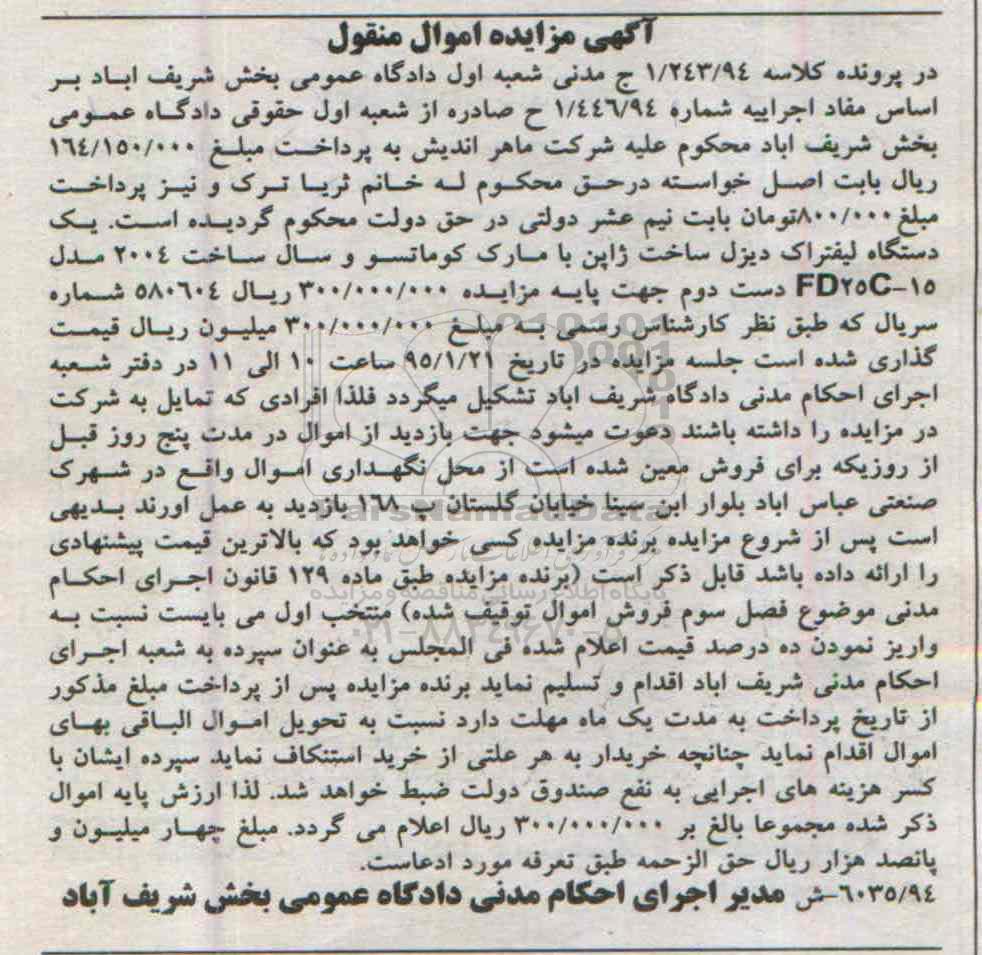 آگهی مزایده اموال منقول
در پرونده کلاسه ۱/۲۴۳/۹۴ ج مدنی شعبه اول دادگاه عمومی بخش شریف اباد بر
اساس مفاد اجراییه شماره ۱/۴۴۶/۹۴ ح صادره از شعبه اول حقوقی دادگاه عمومی
بخش شریف اباد محکوم علیه شرکت ماهر اندیش به پرداخت مبلغ ۱۶۴/۱۵۰/۰۰۰
ریال بابت اصل خواسته درحق محکوم له خانم ثریا ترک و نیز پرداخت
مبلغ ۸۰۰/۰۰۰تومان بابت نیم عشر دولتی در حق دولت محکوم گردیده است. یک
دستگاه لیفتراک دیزل ساخت ژاپن با مارک کوماتسو و سال ساخت ۲۰۰۴ مدل
FD۲۵C-۱۵ دست دوم جهت پایه مزایده ۳۰۰/۰۰۰/۰۰۰ ریال ۵۸۰۶۰۴ شماره
سریال که طبق نظر کارشناس رسمی به مبلغ ۳۰۰/۰۰۰/۰۰۰ میلیون ریال قیمت
گذاری شده است جلسه مزایده در تاریخ ۹۵/۱/۲۱ ساعت ۱۰ الی ۱۱ در دفتر شعبه
اجرای احکام مدنی دادگاه شریف اباد تشکیل میگردد فلذا افرادی که تمایل به شرکت
در مزایده را داشته باشند دعوت میشود جهت بازدید از اموال در مدت پنج روز قبل
از روزیکه برای فروش معین شده است از محل نگهداری اموال واقع در شهرک
صنعتی عباس اباد بلوار ابن سینا خیابان گلستان پ ۱۶۸ بازدید به عمل اورند بدیهی
است پس از شروع مزایده برنده مزایده کسی خواهد بود که بالاترین قیمت پیشنهادی
را ارائه داده باشد قابل ذکر است (برنده مزایده طبق ماده ۱۲۹ قانون اجرای احکام
مدنی موضوع فصل سوم فروش اموال توقیف شده) منتخب اول می بایست نسبت به
واریز نمودن ده درصد قیمت اعلام شده فی المجلس به عنوان سپرده به شعبه اجرای
احکام مدنی شریف اباد اقدام و تسلیم نماید برنده مزایده پس از پرداخت مبلغ مذکور
از تاریخ پرداخت به مدت یک ماه مهلت دارد نسبت به تحویل اموال الباقی بهای
اموال اقدام نماید چنانچه خریدار به هر علتی از خرید استنکاف نماید سپرده ایشان با
کسر هزینه های اجرایی به نفع صندوق دولت ضبط خواهد شد. لذا ارزش پایه اموال
ذکر شده مجموعا بالغ بر ۳۰۰/۰۰۰/۰۰۰ ریال اعلام می گردد. مبلغ چهار میلیون و
پانصد هزار ریال حق الزحمه طبق تعرفه مورد ادعاست.
۶۰۳۵/۹۴-ش مدیر اجرای احکام مدنی دادگاه عمومی بخش شریف آباد
ParsNamadData
پایگاه اطلاع رسانی مناقصه و مزایده